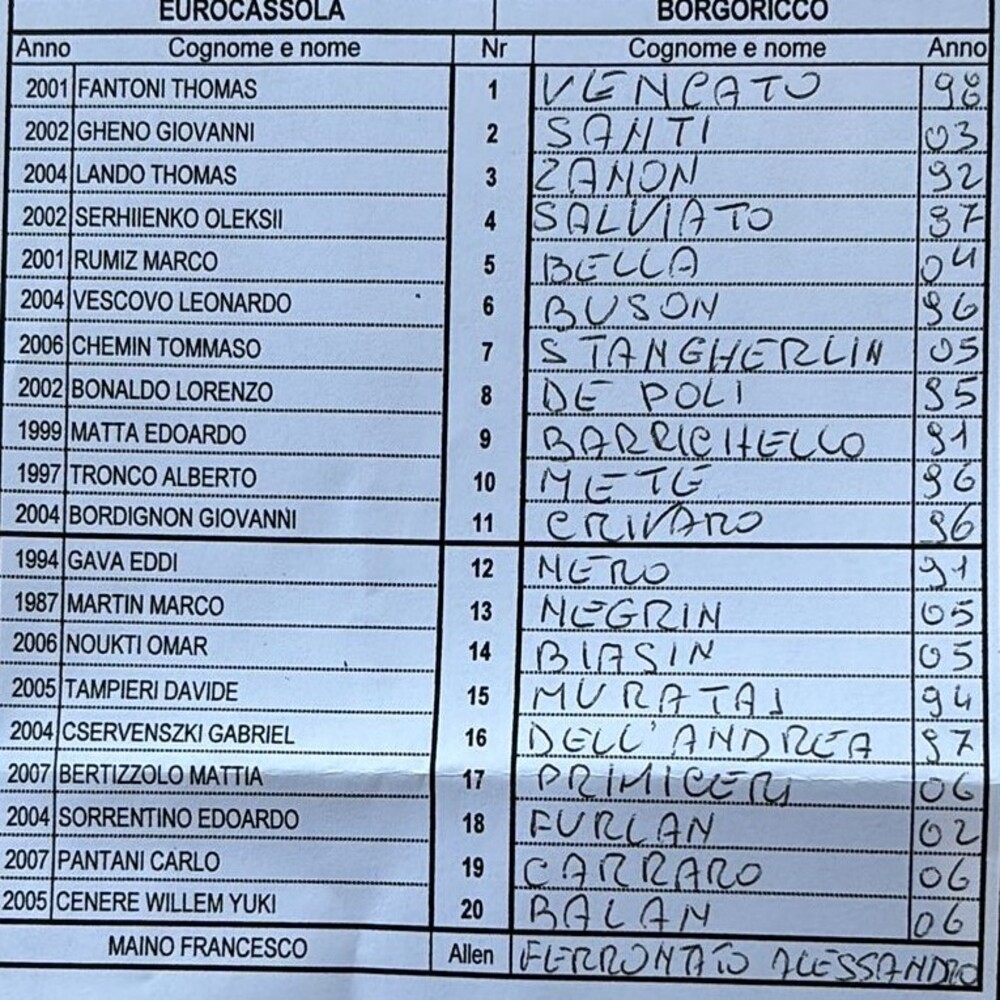 EUROCASSOLA BORGORICCO
Anno Cognome e nome Nr Cognome e nome Anno
2001 FANTONI THOMAS 1 VENCATO 98
2002 GHENO GIOVANNI 2 SANTI 03
2004 LANDO THOMAS 3 ZANON 92
2002 SERHIIENKO OLEKSII 4 SALVIATO 97
2001 RUMIZ MARCO 5 BELLA 04
2004 VESCOVO LEONARDO 6 BUSON 96
2006 CHEMIN TOMMASO 7 STANGHERLIN 05
2002 BONALDO LORENZO 8 DE POLI 95
1999 MATTA EDOARDO 9 BARRICHELLO 91
1997 TRONCO ALBERTO 10 METE 96
2004 BORDIGNON GIOVANNI 11 CRIVARO 96
1994 GAVA EDDI 12 NERO 91
1987 MARTIN MARCO 13 NEGRIN 05
2006 NOUKTI OMAR 14 BIASIN 05
2005 TAMPIERI DAVIDE 15 MURATAJ 94
2004 CSERVENSZKI GABRIEL 16 DELL'ANDREA 97
2007 BERTIZZOLO MATTIA 17 PRIMICERI 06
2004 SORRENTINO EDOARDO 18 FURLAN 02
2007 PANTANI CARLO 19 CARRARO 06
2005 CENERE WILLEM YUKI 20 BALAN 06
MAINO FRANCESCO Allen FERRONATO ALESSANDRO